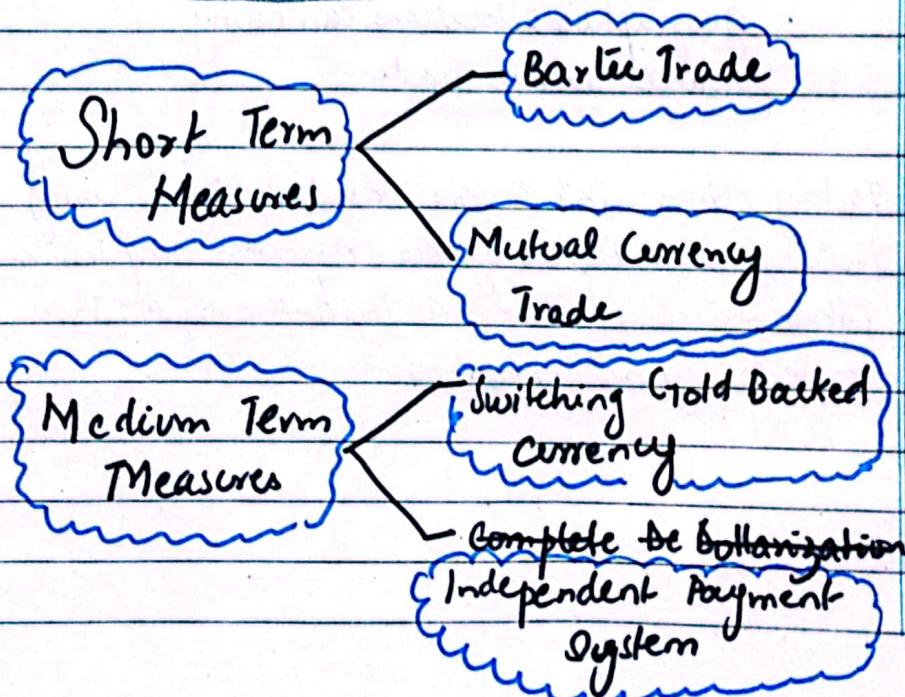 Short Term
Measures
Barter Trade
Mutual Currency
Trade
Medium Term
Measures
Switching Gold Backed
currency
Complete De Dollarization
Independent Payment
System